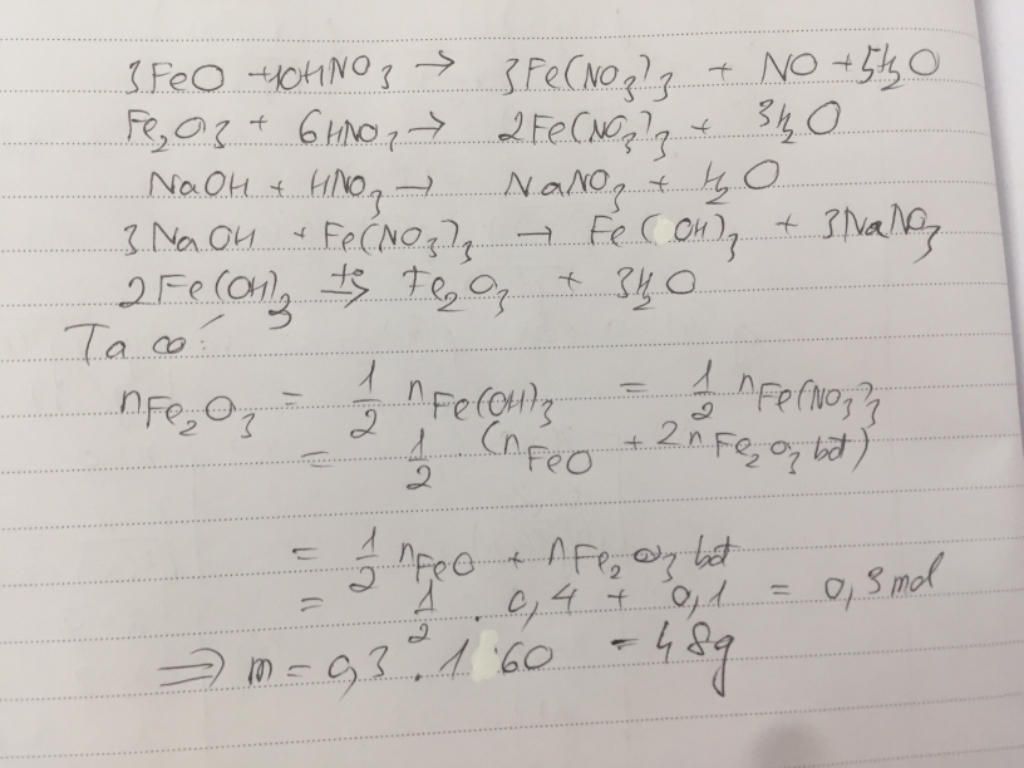 3FeO + 10HNO3 → 3Fe(NO3)3 + NO + 5H2O
Fe2O3 + 6HNO3 → 2Fe(NO3)3 + 3H2O
NaOH + HNO3 → NaNO3 + H2O
3NaOH + Fe(NO3)3 → Fe(OH)3 + 3NaNO3
2Fe(OH)3 t° → Fe2O3 + 3H2O
Ta có:
nFe2O3 = 1/2 nFe(OH)3 = 1/2 nFe(NO3)3
= 1/2 . (nFeO + 2nFe2O3 bđ)
= 1/2 nFeO + nFe2O3 bđ
= 1/2 . 0,4 + 0,1 = 0,3 mol
⇒ m = 0,3 . 160 = 48g